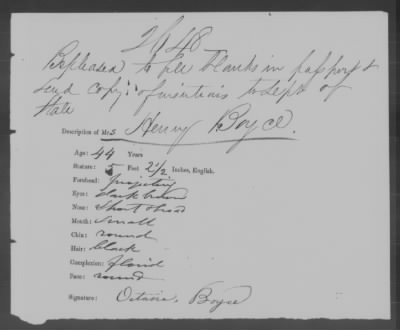 2648
Be pleased to fill blanks in passport &
send copy of insertions to Dept of
State
Description of Mrs Henry Boyce.
Age: 44 Years
Stature: 5 Feet 2 1/2 Inches, English.
Forehead: projecting
Eyes: dark brown
Nose: short & broad
Mouth: small
Chin: round
Hair: black
Complexion: florid
Face: round
Signature: Octavia Boyce